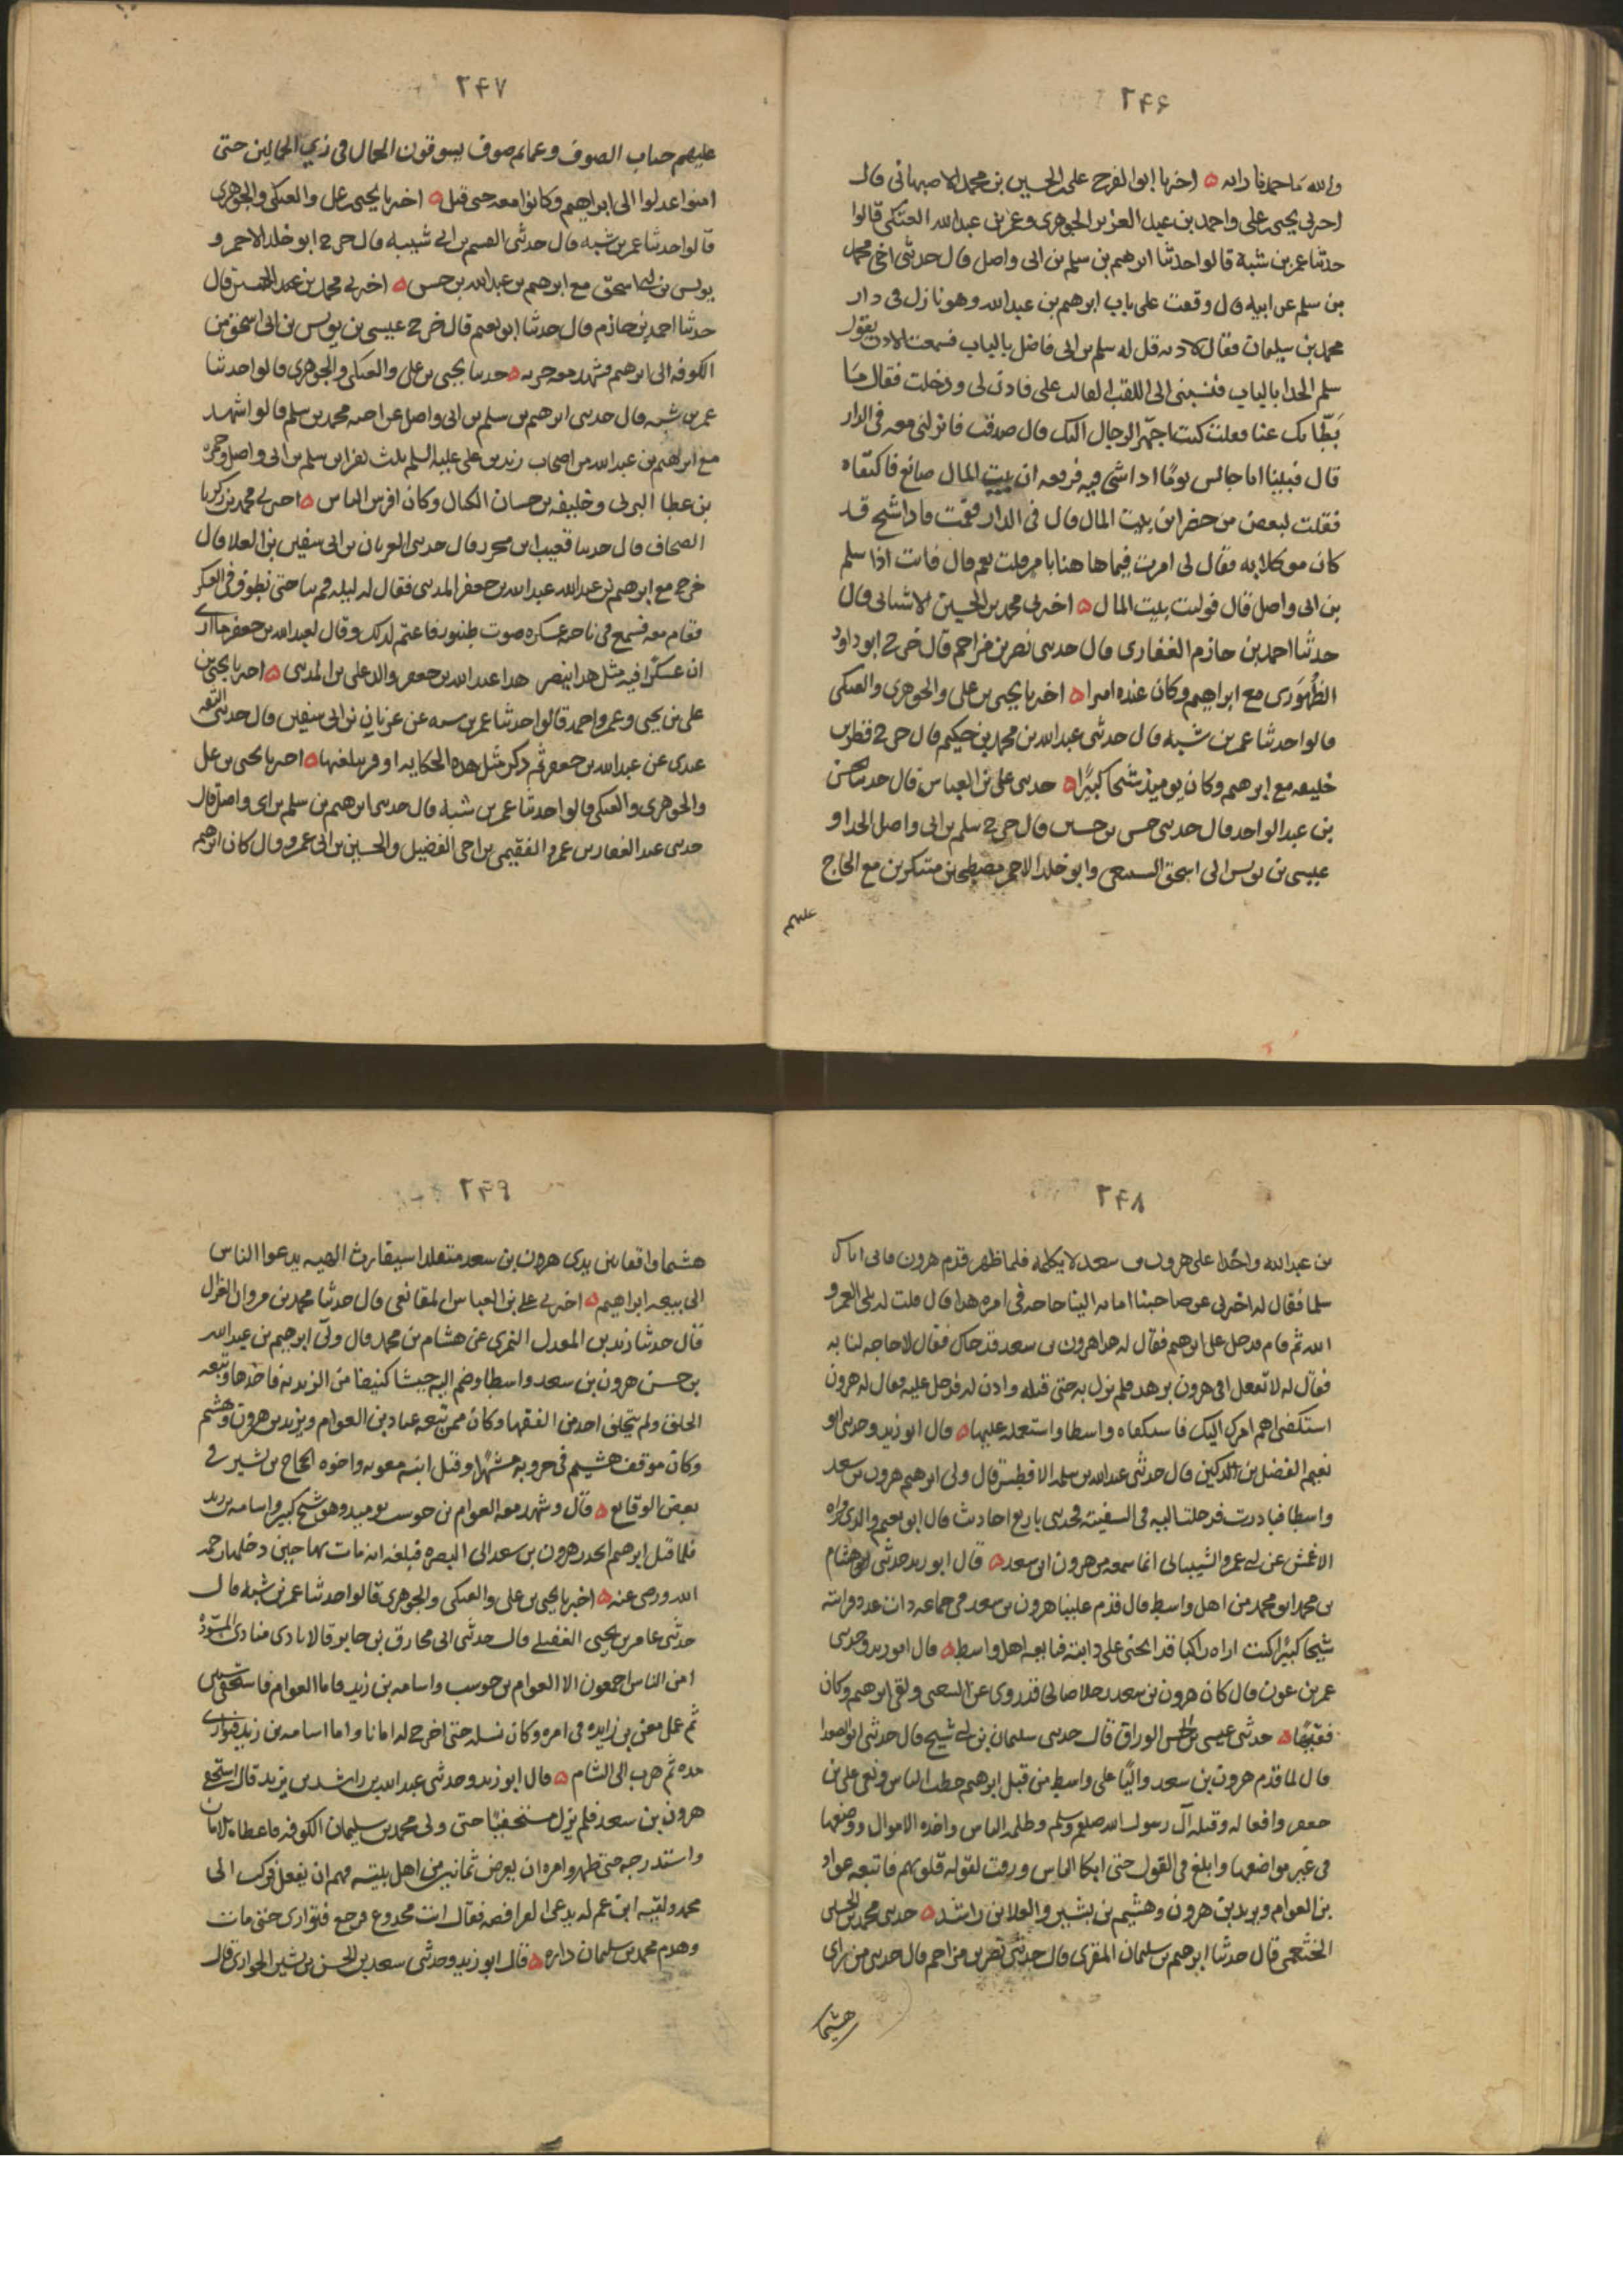 ٢۴۶
والله ما حمدنا رايه ه اخبرنا ابوالفرح على الحسين بن محمد الاصبهانى قال
اخبرنى يحيى على واحمد بن عبد العزيز الجوهرى وعمر بن عبدالله العتكى قالوا
حدثنا عمر بن شبة قالوا حدثنا ابرهيم بن سلم بن ابى واصل قال حدثنى اخى محمد
بن سلم عن ابيه قال وقفت على باب ابرهيم بن عبدالله وهو نازل فى دار
محمد بن سليمان فقال لاذنه قل له سلم بن ابى فاضل بالباب فسمعت الاذن يقول
سلم الحدا بالباب فنسبنى الى اللقب الغالب على فاذن لى ودخلت فقال ما
بَطّابك عنا فقلت كنت اجهز الرجال اليك قال صدقت فانزلنى معه فى الدار
قال فبينا انا جالس يومًا اذا شى فيه فرقعه ان بيت المال ضائع فاكتفاه
فقلت لبعض من حضر اين بيت المال قال فى الدار فقمت فاذا شيخ قد
كان موكلا به فقال لى امرت فيما هاهنا بامر قلت نعم قال فانت اذا سلم
بن ابى واصل قال فوليت بيت المال ه اخبرنى محمد بن الحسين الاشنانى قال
حدثنا احمد بن حازم الغفارى قال حدثنى نصر بن مزاحم قال خرج ابو داود
الطُهَوَرى مع ابراهيم وكان عنده اميرا ه اخبرنا يحيى بن على والجوهرى والعتكى
قالوا حدثنا عمر بن شبه قال حدثنى عبدالله بن محمد بن حكيم قال خرج فطر بن
خليفه مع ابرهيم وكان يوميذ شيخا كبيرًا ه حدثنى على بن العباس قال حدثنا حسن
بن عبد الواحد قال حدثنى حسن بن حسين قال خرج سلم بن ابى واصل الحذا و
عيسى بن يونس ابى اسحق السبيعى وابو خلد الاحمر مصطحبين متنكرين مع الحاج
عليهم
٢۴٧
عليهم جباب الصوف وعمايم صوف يسوقون الجمال فى زى الجمالين حتى
امنوا عدلوا الى ابراهيم وكانوا معه حتى قتل ه اخبرنا يحيى بن على والعتكى والجوهرى
قالوا حدثنا عمر بن شبه قال حدثنى القسم بن ابى شيبه قال خرج ابو خلد الاحمر و
يونس بن ابى اسحق مع ابرهيم بن عبدالله بن حسن ه اخبرنى محمد بن قال
حدثنا احمد بن حازم قال حدثنا ابو نعيم قال خرج عيسى بن يونس بن ابى اسحق من
الكوفه الى ابرهيم فشهد معه حربه ه حدثنا يحيى بن على والعتكى والجوهرى قالوا حدثنا
عمر بن شبه قال حدثنى ابرهيم بن سلم بن ابى واصل عن اخيه محمد بن سلم قالوا شهد
مع ابراهيم بن عبدالله من اصحاب زيد بن على عليه السلم ثلث نفر ابن سلم بن ابى واصل وحمزه
بن عطا البرنى وخليفه بن حسان الكيال وكان افرس الناس ه اخبرنى محمد بن زكريا
الصحاف قال حدثنا قعنب ابن محرر قال حدثنى العريان بن ابى سفين بن العلا قال
خرج مع ابرهيم بن عبدالله عبدالله بن جعفر المدينى فقال له ليله قم بنا حتى نطوف فى العسكر
فقام معه فسمع فى ناحيه عسكره صوت طنبور فاغتم لذلك وقال لعبدالله بن جعفر ما ارى
ان عسكرًا فيه مثل هذا ينصر هذا عبدالله بن جعفر والد على بن المدينى ه اخبرنا يحيى بن
على بن يحيى وعمر واحمد قالوا حدثنا عمر بن شبه عن عريان بن ابى سفين قال حدثنى الثقه
عندى عن عبدالله بن جعفر ثم ذكر مثل هذه الحكايه او قريبا منها ه اخبرنا يحيى بن على
والجوهرى والعتكى قالوا حدثنا عمر بن شبة قال حدثنى ابرهيم بن سلم بن ابى واصل قال
حدثنى عبد الغفار بن عمرو الفقيمى بن اخى الفضيل والحسين بن ابى عمرو قال كان ابرهيم
٢۴٨
بن عبدالله واجدًا على هرون بن سعد لا يكلمه فلما ظهر قدم هرون فاتى اباك
سلما فقال له اخبرنى عن صاحبنا اما به الينا حاجه فى امره هذا قال قلت له بلى لعمرو
الله ثم قام فدخل على ابرهيم فقال له هذا هرون بن سعد قد جاك فقال لا حاجه لنا به
فقال له لا تفعل افى هرون تزهد فلم يزل به حتى قبله واذن له فدخل عليه فقال له هرون
استكفنى اهم امرك اليك فاستكفاه واسطا واستعمله عليها ه قال ابو زيد وحدثنى ابو
نعيم الفضل بن الدكين قال حدثنى عبدالله بن سلمه الافطس قال ولى ابرهيم هرون بن سعد
واسطا فبادرت فدخلت اليه فى السفينه فحدثنى باربع احاديث قال ابو نعيم والذى رواه
الاعمش عن ابى عمرو الشيبانى انما سمعه من هرون ابن سعد ه قال ابو زيد حدثنى ابو هشام
بن محمد ابو محمد من اهل واسط قال قدم علينا هرون بن سعد فى جماعه ذات عدد فرايته
شيخا كبيرًا كنت اراه راكبا قد انحنى على دابته فبايعه اهل واسط ه قال ابو زيد وحدثنى
عمر بن عون قال كان هرون بن سعد رجلا صالحا قد روى عن الشعبى ولقى ابرهيم وكان
فقيهًا ه حدثنى عيسى بن الحسن الوراق قال حدثنى سليمان بن ابى شيخ قال حدثنى ابو الصعدا
قال لما قدم هرون بن سعد واليًا على واسط من قبل ابرهيم خطب الناس ونعى على بن
جعفر وافعاله وقتله آل رسول الله صلعم وسلم وظلمه الناس واخذه الاموال ووضعها
فى غير مواضعها وابلغ فى القول حتى ابكا الناس ورقت لقوله قلوبهم فاتبعه عواد
بن العوام ويزيد بن هرون وهشيم بن بشير والعلا بن راشد ه حدثنى محمد بن الحسين
الخثعمى قال حدثنا ابرهيم بن سليمان المقرى قال حدثنى نصر بن مزاحم قال حدثنى من راى
هشيما
٢۴٩
هشيما واقفا بين يدى هرون بن سعد متقلدا سيفا رث الهيه يدعوا الناس
الى بيعه ابراهيم ه اخبرنى على بن العباس المقانعى قال حدثنا محمد بن مروان الغزال
قال حدثنا زيد بن المعدل النمرى عن هشام بن محمد قال ولّى ابرهيم بن عبدالله
بن حسن هرون بن سعد واسطا وضم اليه جيشا كثيفا من الزيديه فاخذها وتبعه
الخلق ولم يتخلف احد من الفقها وكان ممن تبعه عباد بن العوام ويزيد بن هرون وهشيم
وكان موقف هشيم فى حروبه مشهرا وقتل ابنه معويه واخوه الحاج بن بشير فى
بعض الوقايع ه قال وشهد معه العوام بن حوشب يوميد وهو شيخ كبير واسامه بن زيد
فلما قتل ابرهيم انحدر هرون بن سعد الى البصره فبلغه انه مات بها حين دخلها رحمه
الله ورضى عنه ه اخبرنا يحيى بن على والعتكى والجوهرى قالوا حدثنا عمر بن شبه قال
حدثنى عامر بن يحيى العقيلى قال حدثنى ابى مخارق بن جابر قالا نادى منادى المسوّدة
امن الناس اجمعون الا العوام بن حوشب واسامه بن زيد فاما العوام فاستخفى سنتين
ثم عمل معن بن زايده فى امره وكان نسله حتى اخرج له امانا واما اسامه بن زيد فتوارى
مده ثم هرب الى الشام ه قال ابو زيد وحدثنى عبدالله بن راشد بن يزيد قال استخفى
هرون بن سعد فلم يزل مستخفيًا حتى ولى محمد بن سليمان الكوفه فاعطاه الامان
واستدرجه حتى ظهر وامره ان يعرض ثمانين من اهل بيته فهم ان يفعل فركب الى
محمد ولقيه ابن عم له يدعى الفرافصه فقال انت مخدوع فرجع فتوارى حتى مات
وهدم محمد بن سليمان داره ه قال ابو زيد وحدثنى سعد بن الحسن بن بشير الحوارى قال